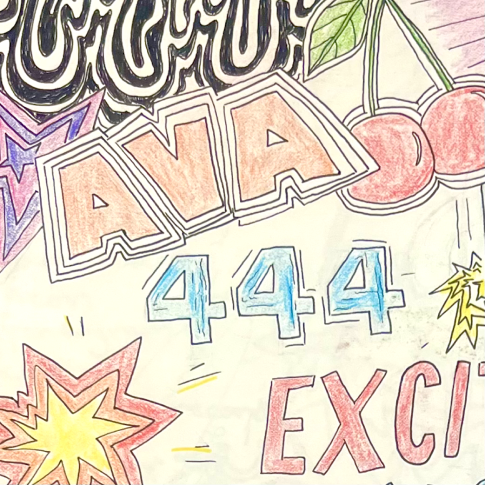 AVA
444
EXCI